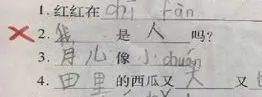 1. 红红在 chī fàn
2. 我 是 人 吗?
3. 月儿 像 小 chuán
4. 田里 的西瓜又 大 又